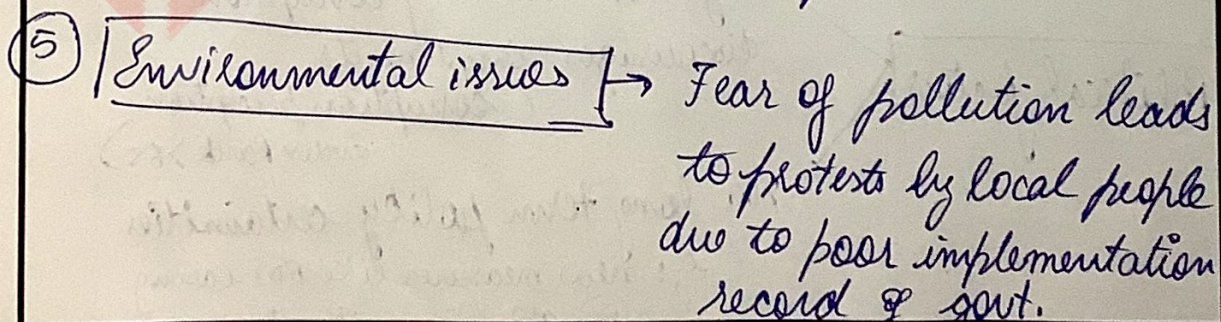 5 Environmental issues → Fear of pollution leads
to protests by local people
due to poor implementation
record of govt.